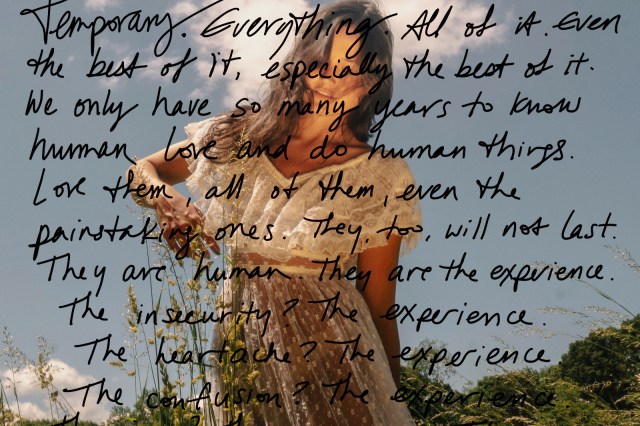 Temporary. Everything. All of it. Even
the best of it, especially the best of it.
We only have so many years to know
human love and do human things.
Love them, all of them, even the
painstaking ones. They, too, will not last.
They are human. They are the experience.
The insecurity? The experience.
The heartache? The experience
The confusion? The experience